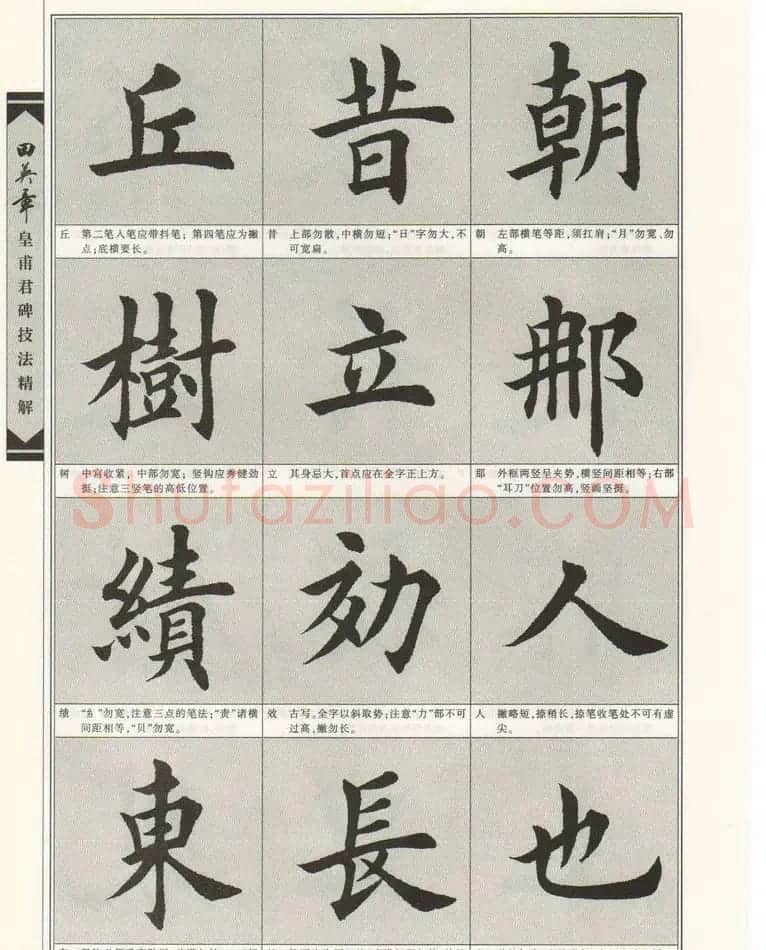 田英章
皇甫君碑技法精解
丘
昔
朝
丘 第二笔入笔应带抖笔；第四笔应为撇
点；底横要长。
昔 上部勿散，中横勿短；“日”字勿大，不
可宽扁。
朝 左部横笔等距，须扛肩；“月”勿宽、勿
高。
樹
立
郍
树 中宫收紧，中部勿宽；竖钩应秀健劲
挺；注意三竖笔的高低位置。
立 其身忌大，首点应在全字正上方。
那 外框两竖呈夹势，横竖间距相等；右部
“耳刀”位置勿高，竖画坚挺。
Shufaziliao.COM
績
効
人
绩 “糹”勿宽，注意三点的笔法；“责”诸横
间距相等，“贝”勿宽。
效 古写。全字以斜取势；注意“力”部不可
过高，撇勿长。
人 撇略短，捺稍长，捺笔收笔处不可有虚
尖。
東
長
也